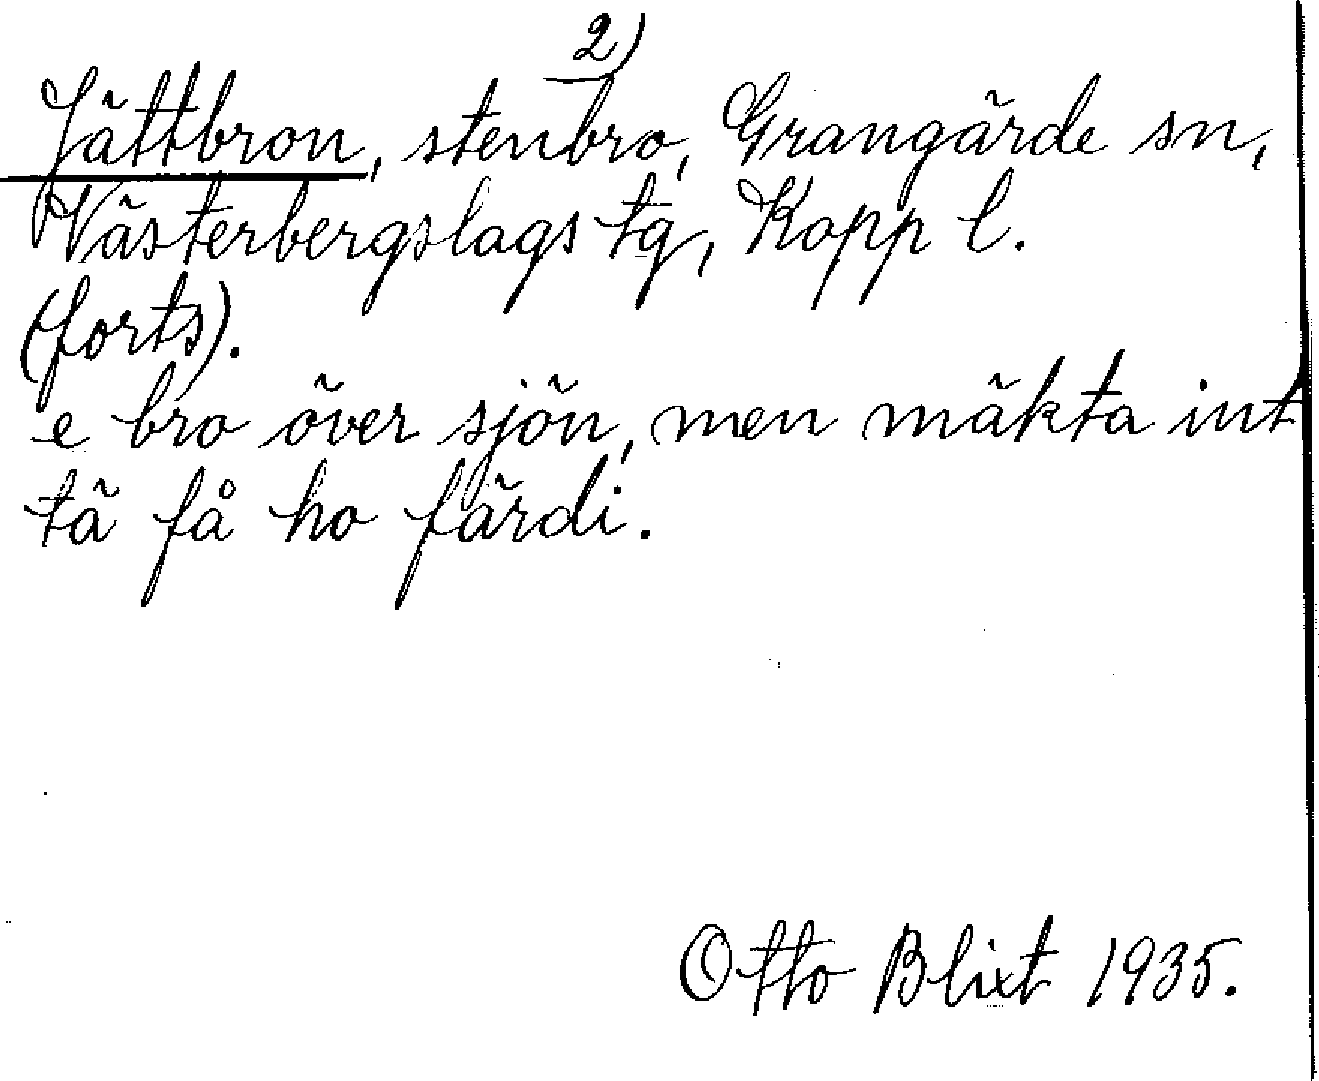 2)
Jättbron, stenbro, Grangärde sn,
Västerbergslags tg, Kopp l.
(forts).
e bro över sjön, men mäkta int
tä få ho färdi.
Otto Blixt 1935.